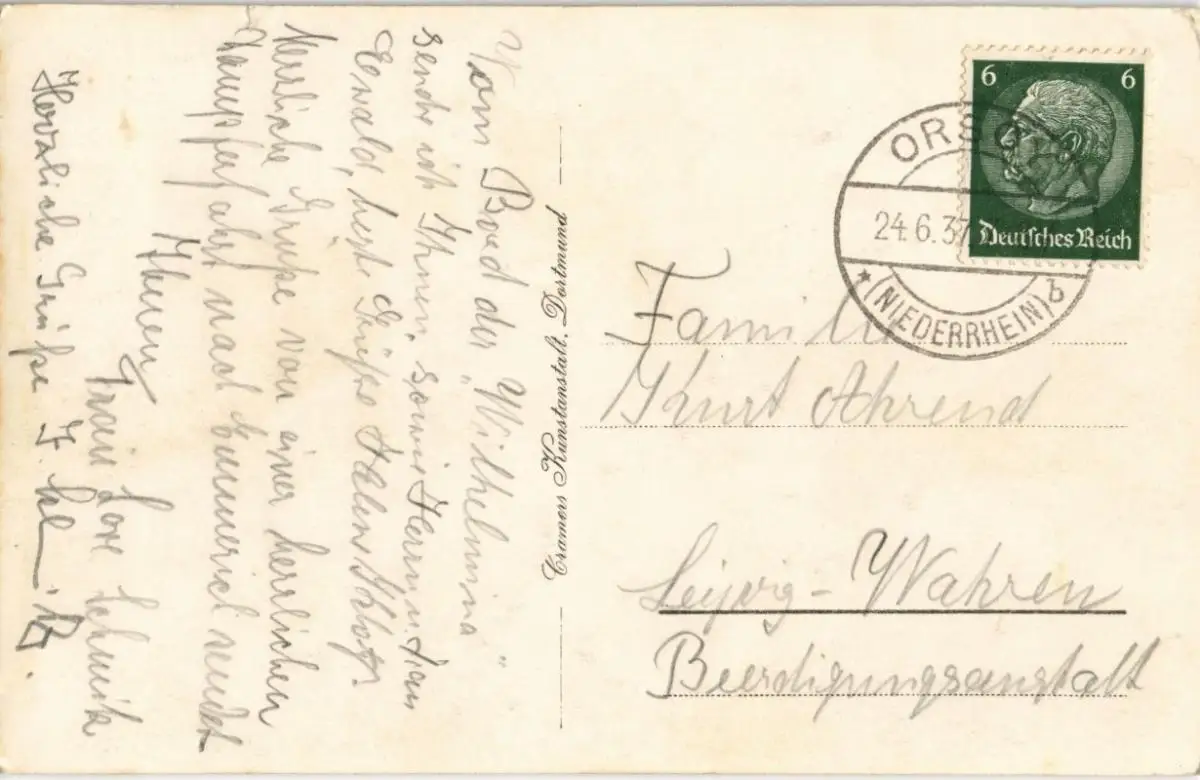 Vom Bord der "Wilhelmina"
sende ich Ihnen, sowie Herrn u. Frau
Ewald, herzl. Grüße
herzliche Grüße von einer herrlichen
Dampferfahrt nach Emmerich sendet
Ihnen
Frau Lore
Herzliche Grüße
Cramers Kunstanstalt, Dortmund
6 6
Deutsches Reich
ORSOY
24.6.37
(NIEDERRHEIN) b
Familie
Kurt Ahrend
Leipzig-Wahren
Beerdigungsanstalt